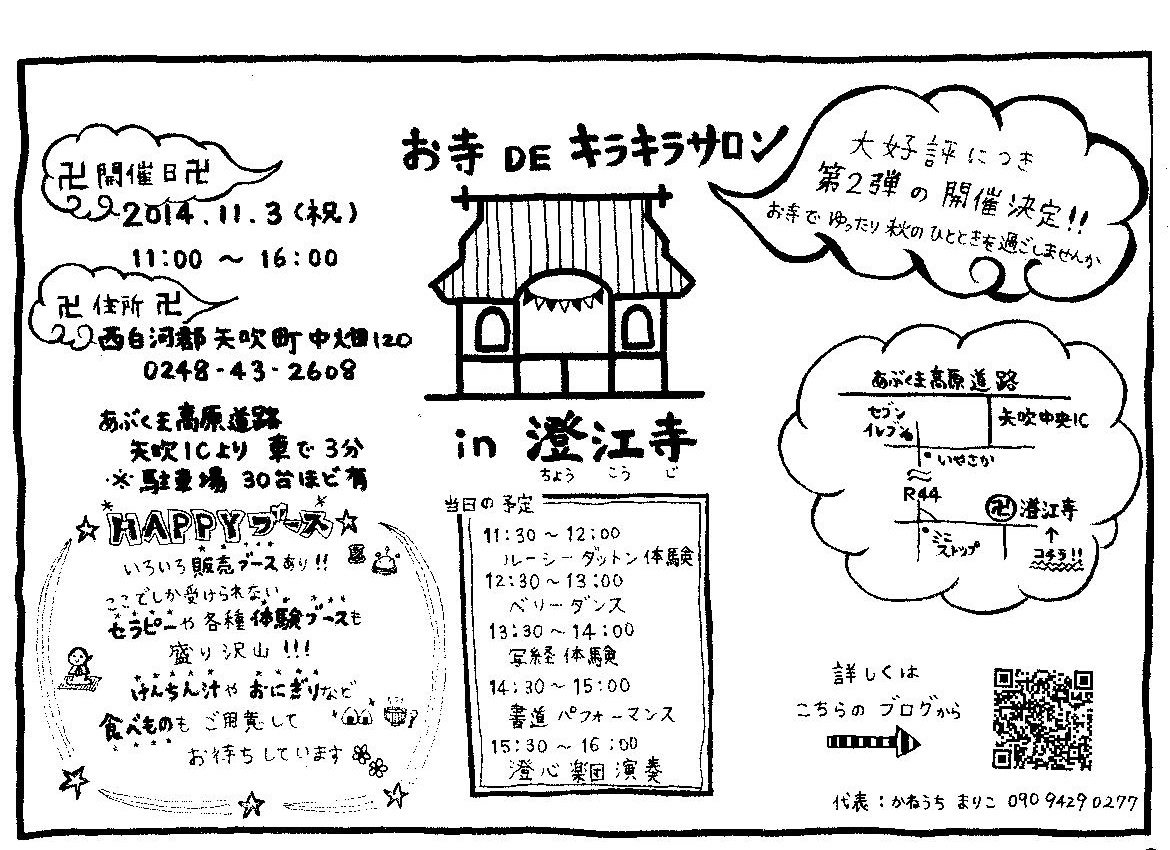 お寺 DE キラキラサロン
大好評につき
第2弾の開催決定!!
お寺でゆったり秋のひとときを過ごしませんか
卍開催日卍
2014.11.3(祝)
11:00 〜 16:00
卍 住所 卍
西白河郡矢吹町中畑120
0248-43-2608
あぶくま高原道路
矢吹ICより 車で3分
※駐車場 30台ほど有
in 澄江寺
ちょう こう じ
HAPPYブース
いろいろ販売ブースあり!!
ここでしか受けられない
セラピーや各種体験ブースも
盛り沢山!!!
けんちん汁や おにぎりなど
食べものも ご用意して
お待ちしています
当日の予定
11:30 〜 12:00
ルーシーダットン体験
12:30 〜 13:00
ベリーダンス
13:30 〜 14:00
写経体験
14:30 〜 15:00
書道パフォーマンス
15:30 〜 16:00
澄心楽団演奏
あぶくま高原道路
セブン
イレブン
矢吹中央IC
いやさか
R44
卍 澄江寺
ミニ
ストップ
↑
コチラ!!
詳しくは
こちらの ブログから
代表:かねうち まりこ 090 9429 0277